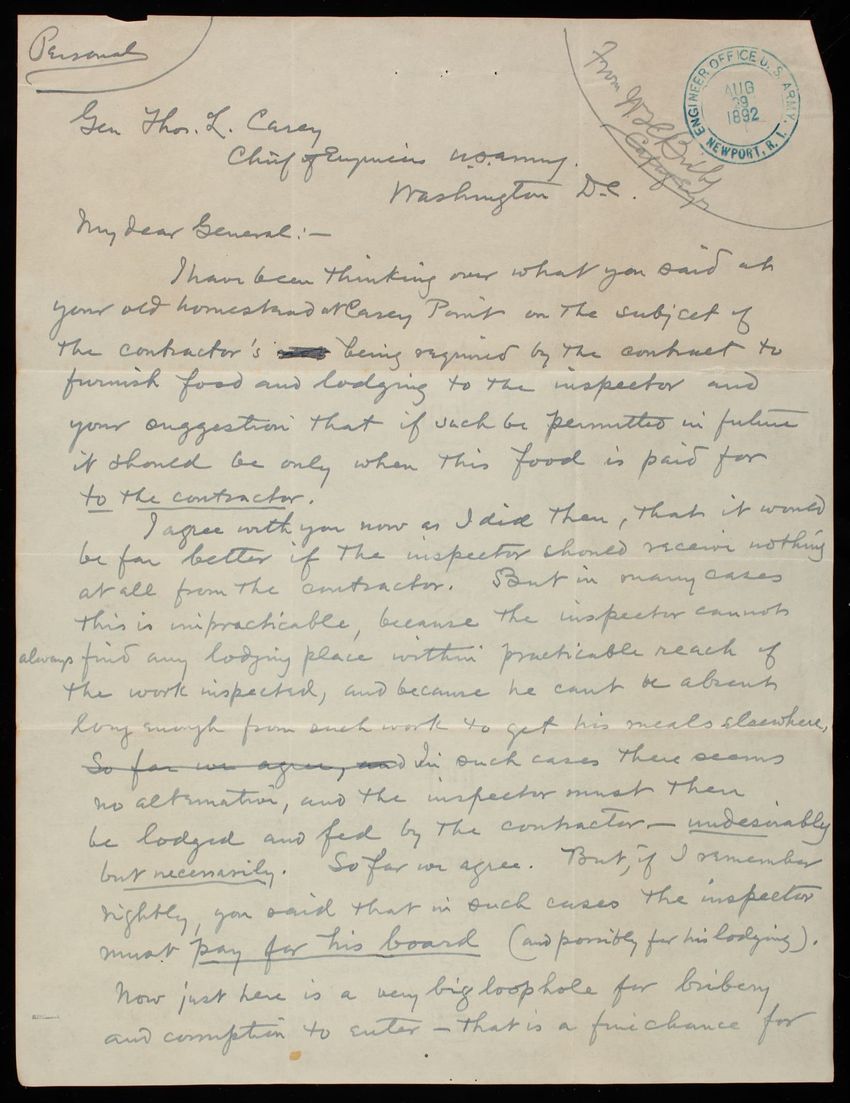 Personal
From W.H. Bixby
Capt. Engrs
ENGINEER OFFICE U.S. ARMY.
AUG
29
1892
NEWPORT, R. I.
Gen Thos. L. Casey
Chief of Engineers U.S. Army.
Washington D.C.
My dear General:—
I have been thinking over what you said at
your old homestead at Casey Point on the subject of
the contractor's being required by the contract to
furnish food and lodging to the inspector and
your suggestion that if such be permitted in future
it should be only when this food is paid for
to the contractor.
I agree with you now as I did then, that it would
be far better if the inspector should receive nothing
at all from the contractor. But in many cases
this is impracticable, because the inspector cannot
always find any lodging place within practicable reach of
the work inspected, and because he can't be absent
long enough from such work to get his meals elsewhere,
So far we agree, and In such cases there seems
no alternative, and the inspector must then
be lodged and fed by the contractor — undesirably
but necessarily. So far we agree. But, if I remember
rightly, you said that in such cases the inspector
must pay for his board (and possibly for his lodging).
Now just here is a very big loophole for bribery
and corruption to enter — that is a fine chance for